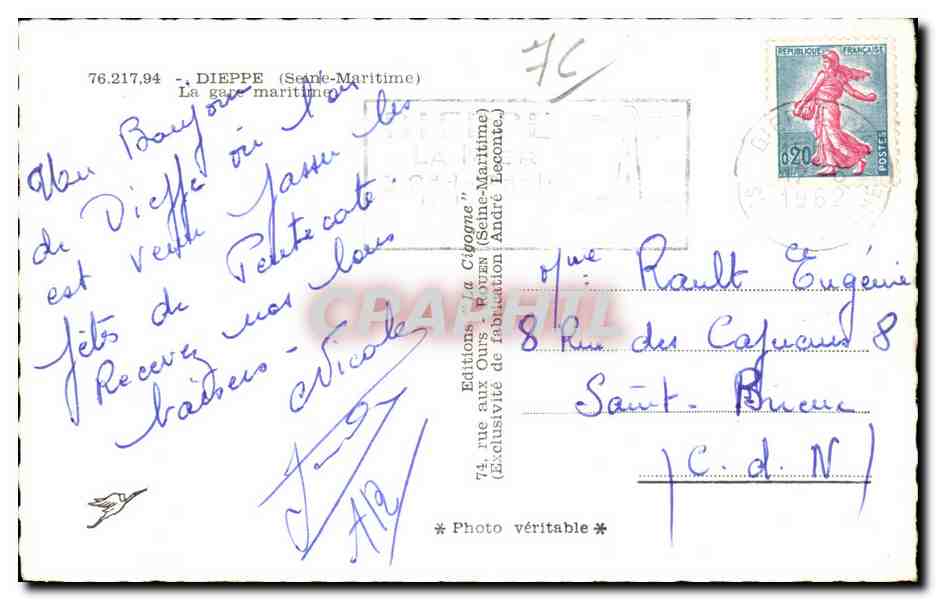 76.217,94 - DIEPPE (Seine-Maritime)
La gare maritime
Un Bonjour
de Dieppe où l'on
est venu passer les
fêtes de Pentecote.
Recevez nos bons
baisers - Nicole
Editions "La Cigogne"
74, rue aux Ours - ROUEN (Seine-Maritime)
(Exclusivité de fabrication André Leconte.)
* Photo véritable *
REPUBLIQUE FRANÇAISE
0,20
POSTES
1962
DIEPPE
LA MER
Mme Rault Eugénie
8 Rue des Capucins 8
Saint-Brieuc
(C.d.N)
CPAPHIL